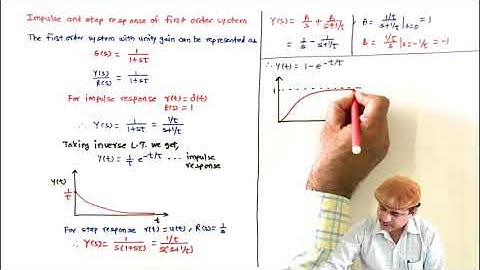 Impulse and step response of first order system
The first order system with unity gain can be represented as
G(s) = 1/(1+sτ)
Y(s)/R(s) = 1/(1+sτ)
For impulse response r(t) = d(t)
R(s) = 1
∴ Y(s) = 1/(1+sτ) = (1/τ)/(s+1/τ)
Taking inverse L.T. we get,
Y(t) = 1/τ e^(-t/τ) ... impulse
response
Y(t)
1/τ
t
For step response r(t) = u(t), R(s) = 1/s
∴ Y(s) = 1/(s(1+sτ)) = (1/τ)/(s(s+1/τ))
Y(s) = A/s + B/(s+1/τ)
= 1/s - 1/(s+1/τ)
A = (1/τ)/(s+1/τ)|s=0 = 1
B = (1/τ)/s|s=-1/τ = -1
∴ Y(t) = 1 - e^(-t/τ)
1